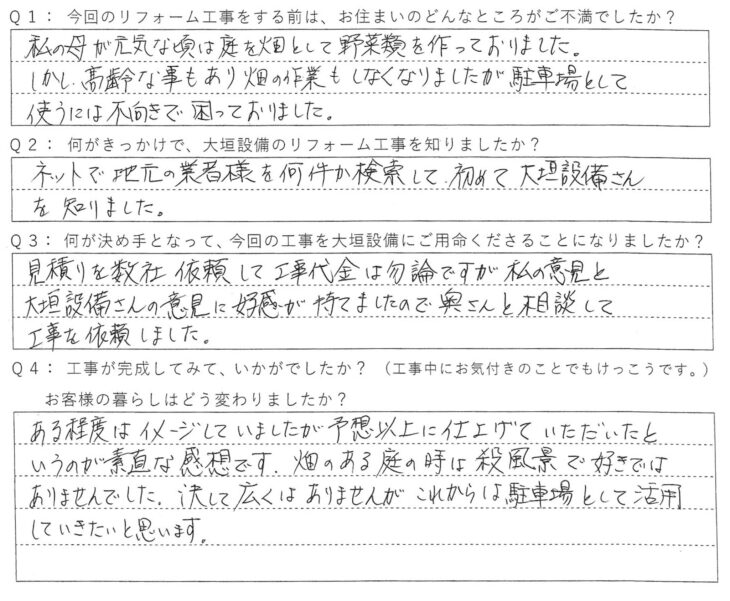 Q1： 今回のリフォーム工事をする前は、お住まいのどんなところがご不満でしたか？
私の母が元気な頃は庭を畑として野菜類を作っておりました。
しかし高齢な事もあり畑の作業もしなくなりましたが駐車場として
使うには不向きで困っておりました。
Q2： 何がきっかけで、大垣設備のリフォーム工事を知りましたか？
ネットで地元の業者様を何件か検索して、初めて大垣設備さん
を知りました。
Q3： 何が決め手となって、今回の工事を大垣設備にご用命くださることになりましたか？
見積りを数社依頼して工事代金は勿論ですが私の意見と
大垣設備さんの意見に好感が持てましたので奥さんと相談して
工事を依頼しました。
Q4： 工事が完成してみて、いかがでしたか？ （工事中にお気付きのことでもけっこうです。）
お客様の暮らしはどう変わりましたか？
ある程度はイメージしていましたが予想以上に仕上げていただいたと
いうのが素直な感想です。畑のある庭の時は殺風景で好きでは
ありませんでした。決して広くはありませんがこれからは駐車場として活用
していきたいと思います。